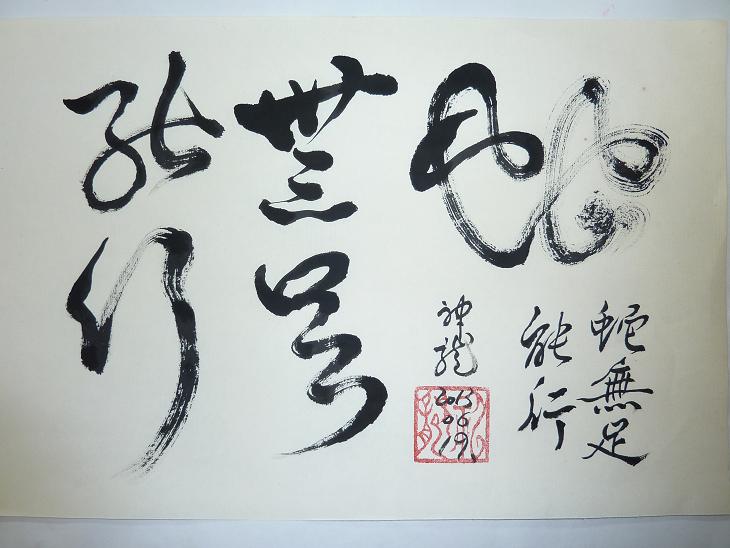 蛇
無足
能行
蛇無足
能行
神龍
2013
06
19